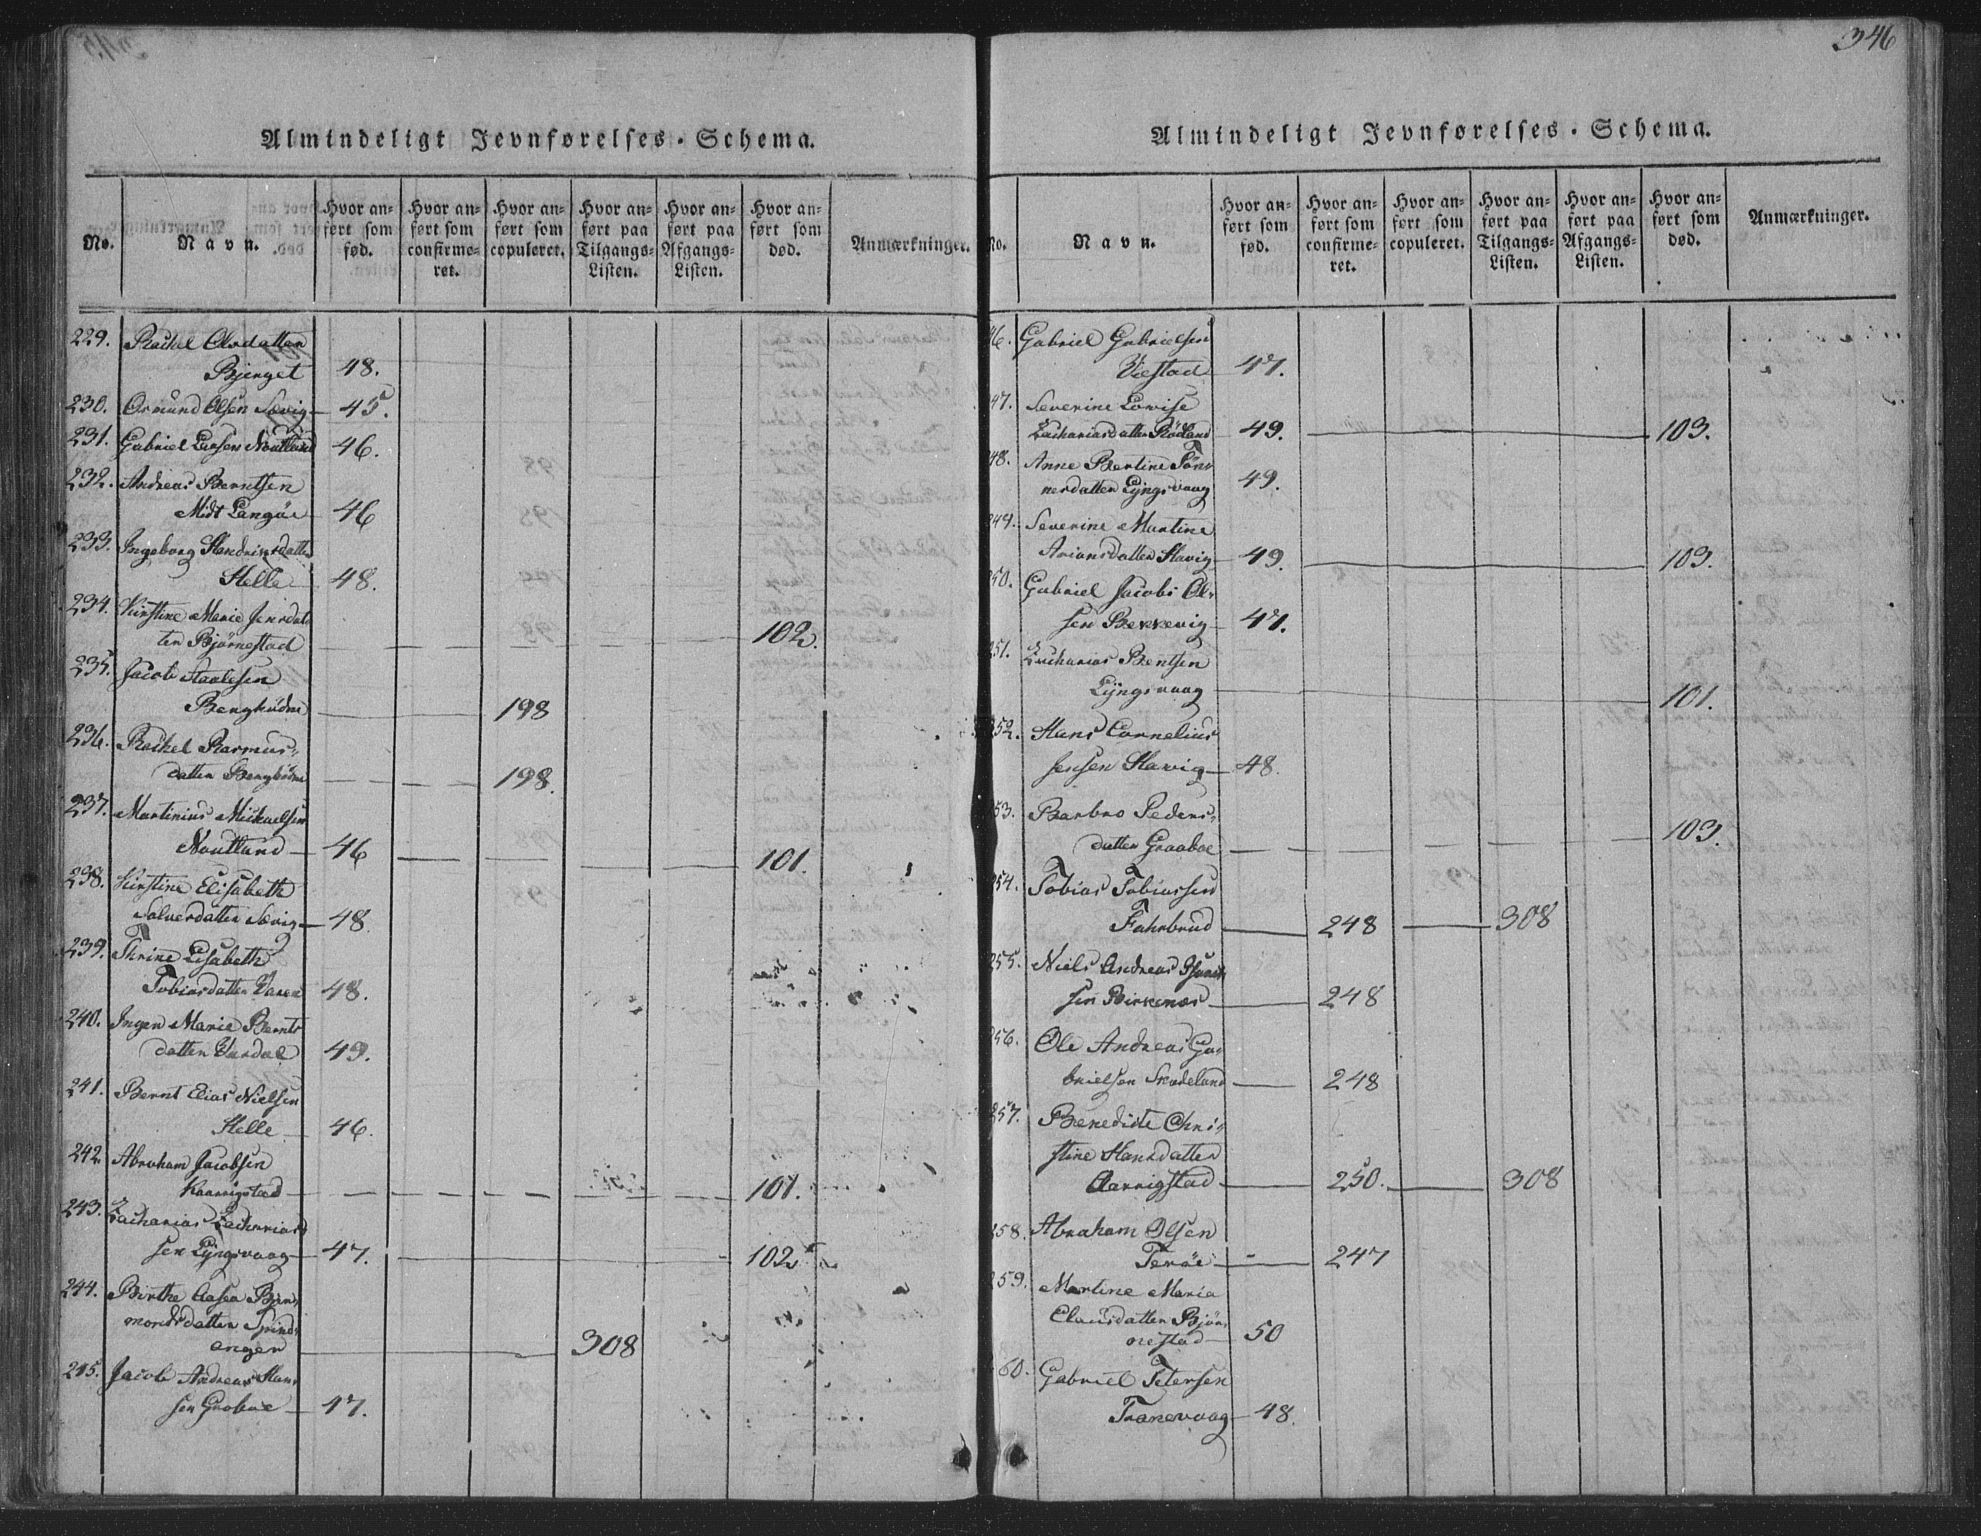 346
Almindeligt Jevnførelses-Schema.
No.
Navn.
Hvor anført som født.
Hvor anført som confirmeret.
Hvor anført som copuleret.
Hvor anført paa Tilgangs-Listen.
Hvor anført paa Afgangs-Listen.
Hvor anført som død.
Anmærkninger.
229. Rachel Olsdatter
Bjerget 48.
230. Osmund Olsen Sævig 45.
231. Gabriel Larsen Noutland 46.
232. Andreas Berntsen
Midt Langöe 46
233. Ingeborg Hendricsdatter
Helle 48.
234. Kirstine Marie Jensdat
ter Björnestad 102.
235. Jacob Staalesen
198
236. Rachel Rasmus-
datter 198.
237. Martinius Mickaelsen
Noutland 46 101.
238. Kirstine Elisabeth
Salvesdatter Sævig 48.
239. Thrine Lisabeth
Tobiasdatter 48.
240. Inger Marie Bernts
datter Vardal 49.
241. Bernt Elias Nielsen
Helle 46.
242. Abraham Jacobsen
101.
243. Zacharias Zacharias
sen Lyngsvaag 47. 102
244. Birthe Aasea
mondsdatter Spind-
angen 308
245. Jacob Andreas Han-
sen Groboe 47.
Almindeligt Jevnførelses-Schema.
No.
Navn.
Hvor anført som fød.
Hvor anført som confirmeret.
Hvor anført som copuleret.
Hvor anført paa Tilgangs-Listen.
Hvor anført paa Afgangs-Listen.
Hvor anført som død.
Anmærkninger.
46. Gabriel Gabrielsen
Viestad 47.
47. Severine Lovise
Zachariasdatter Rödland 49. 103.
48. Anne Bertine Tön-
nesdatter Lyngsvaag 49.
249. Severine Martine
Ariansdatter Havig 49. 103.
50. Gabriel Jacobs Ol-
sen Bekkevig 47.
251. Zacharias Bentsen
Lyngsvaag 101.
252. Hans Cornelius
Jensen Havig 48.
53. Barbro Peders-
datter Graaboe 103.
254. Tobias Tobiassen
Fahrbrud 248 308
255. Niels Andreas
sen Birkenæs 248
256. Ole Andreas Ga-
brielsen Skadeland 248
257. Benedicte Chri-
stine Hansdatter
Aarrigstad 250. 308
258. Abraham Olsen
Teröe 247
259. Martine Maria
Clausdatter Björ-
nestad 50
60. Gabriel Petersen
Tranevaag 48.